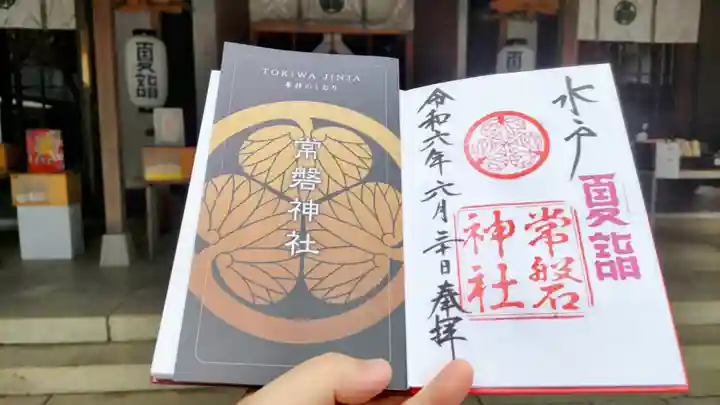 夏詣
TOKIWA JINJA
参拝のしおり
常磐神社
水戸
夏詣
常磐
神社
令和六年六月三十日奉拝